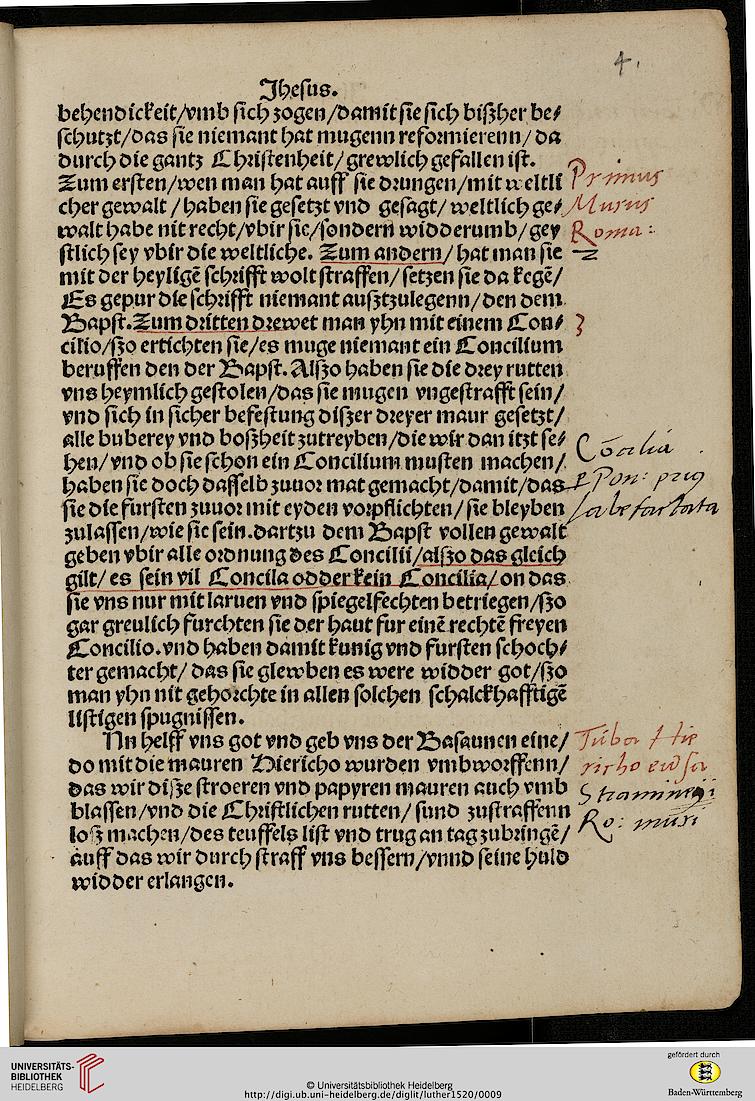 4.
Jhesus.
behendickeit/vmb sich zogen/damit sie sich biszher be⸗
schutzt/das sie niemant hat mugenn reformierenn/da
durch die gantz Christenheit/grewlich gefallen ist.
Zum ersten/wen man hat auff sie drungen/mit weltli
Primus
cher gewalt/haben sie gesetzt vnd gesagt/weltlich ge⸗
Murus
walt habe nit recht/vbir sie/sondern widderumb/gey
Roma:
stlich sey vbir die weltliche. Zum andern/hat man sie
2
mit der heyligē schrifft wolt straffen/setzen sie da kegē/
Es gepur die schrifft niemant ausztzulegenn/den dem
Bapst. Zum dritten drewet man yhn mit einem Con⸗
3
cilio/szo ertichten sie/es muge niemant ein Concilium
beruffen den der Bapst. Alszo haben sie die drey rutten
vns heymlich gestolen/das sie mugen vngestrafft sein/
vnd sich in sicher befestung diszer dreyer maur gesetzt/
alle buberey vnd boszheit zutreyben/die wir dan itzt se⸗
Cōcilia
hen/vnd ob sie schon ein Concilium musten machen/
haben sie doch dasselb zuuor mat gemacht/damit/das
Pon:
sie die fursten zuuor mit eyden vorpflichten/sie bleyben
labefactata
zulassen/wie sie sein. dartzu dem Bapst vollen gewalt
geben vbir alle ordnung des Concilii/alszo das gleich
gilt/es sein vil Concila odder kein Concilia/on das
sie vns nur mit laruen vnd spiegelfechten betriegen/szo
gar greulich furchten sie der haut fur einē rechtē freyen
Concilio. vnd haben damit kunig vnd fursten schoch⸗
ter gemacht/das sie glewben es were widder got/szo
man yhn nit gehorchte in allen solchen schalckhafftigē
listigen spugnissen.
Nn helff vns got vnd geb vns der Basaunen eine/
Tuba Hie
do mit die mauren Hiericho wurden vmbworffenn/
richo
das wir disze stroeren vnd papyren mauren auch vmb
Straminij
blassen/vnd die Christlichen rutten/sund zustraffenn
Ro: muri
losz machen/des teuffels list vnd trug an tag zubringē/
auff das wir durch straff vns bessern/vnnd seine huld
widder erlangen.
UNIVERSITÄTS-
BIBLIOTHEK
HEIDELBERG
© Universitätsbibliothek Heidelberg
http://digi.ub.uni-heidelberg.de/diglit/luther1520/0009
gefördert durch
Baden-Württemberg